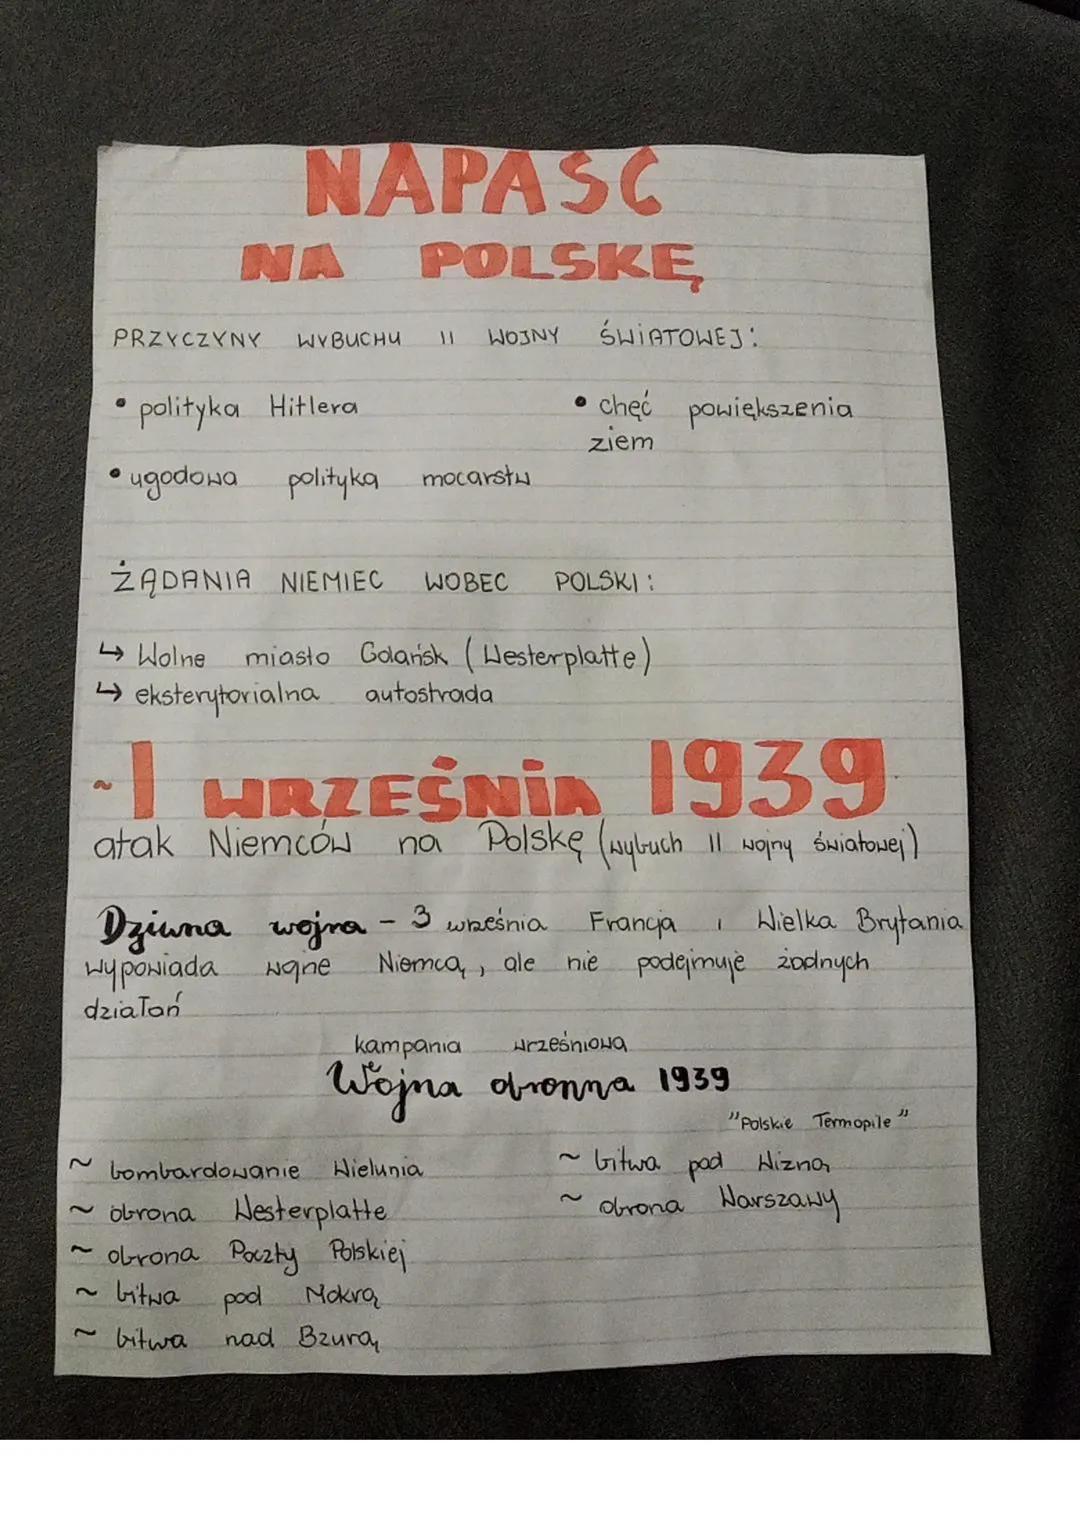 NAPAŚĆ
NA POLSKĘ
PRZYCZYNY WYBUCHU II WOJNY ŚWIATOWEJ:
• polityka Hitlera
• chęć powiększenia
ziem
• ugodowa polityka mocarstw
ŻĄDANIA NIEMIEC WOBEC POLSKI:
↳ Wolne miasto Gdańsk (Westerplatte)
↳ eksterytorialna autostrada
~1 WRZEŚNIA 1939
atak Niemców na Polskę (wybuch II wojny światowej)
Dziwna wojna - 3 września Francja i Wielka Brytania
wypowiada wojnę Niemcą, ale nie podejmuje żadnych
działań
kampania wrześniowa
Wojna obronna 1939
"Polskie Termopile"
~ bombardowanie Wielunia
~ obrona Westerplatte
~ obrona Poczty Polskiej
~ bitwa pod Mokrą
~ bitwa nad Bzurą
~ bitwa pod Wizną
~ obrona Warszawy